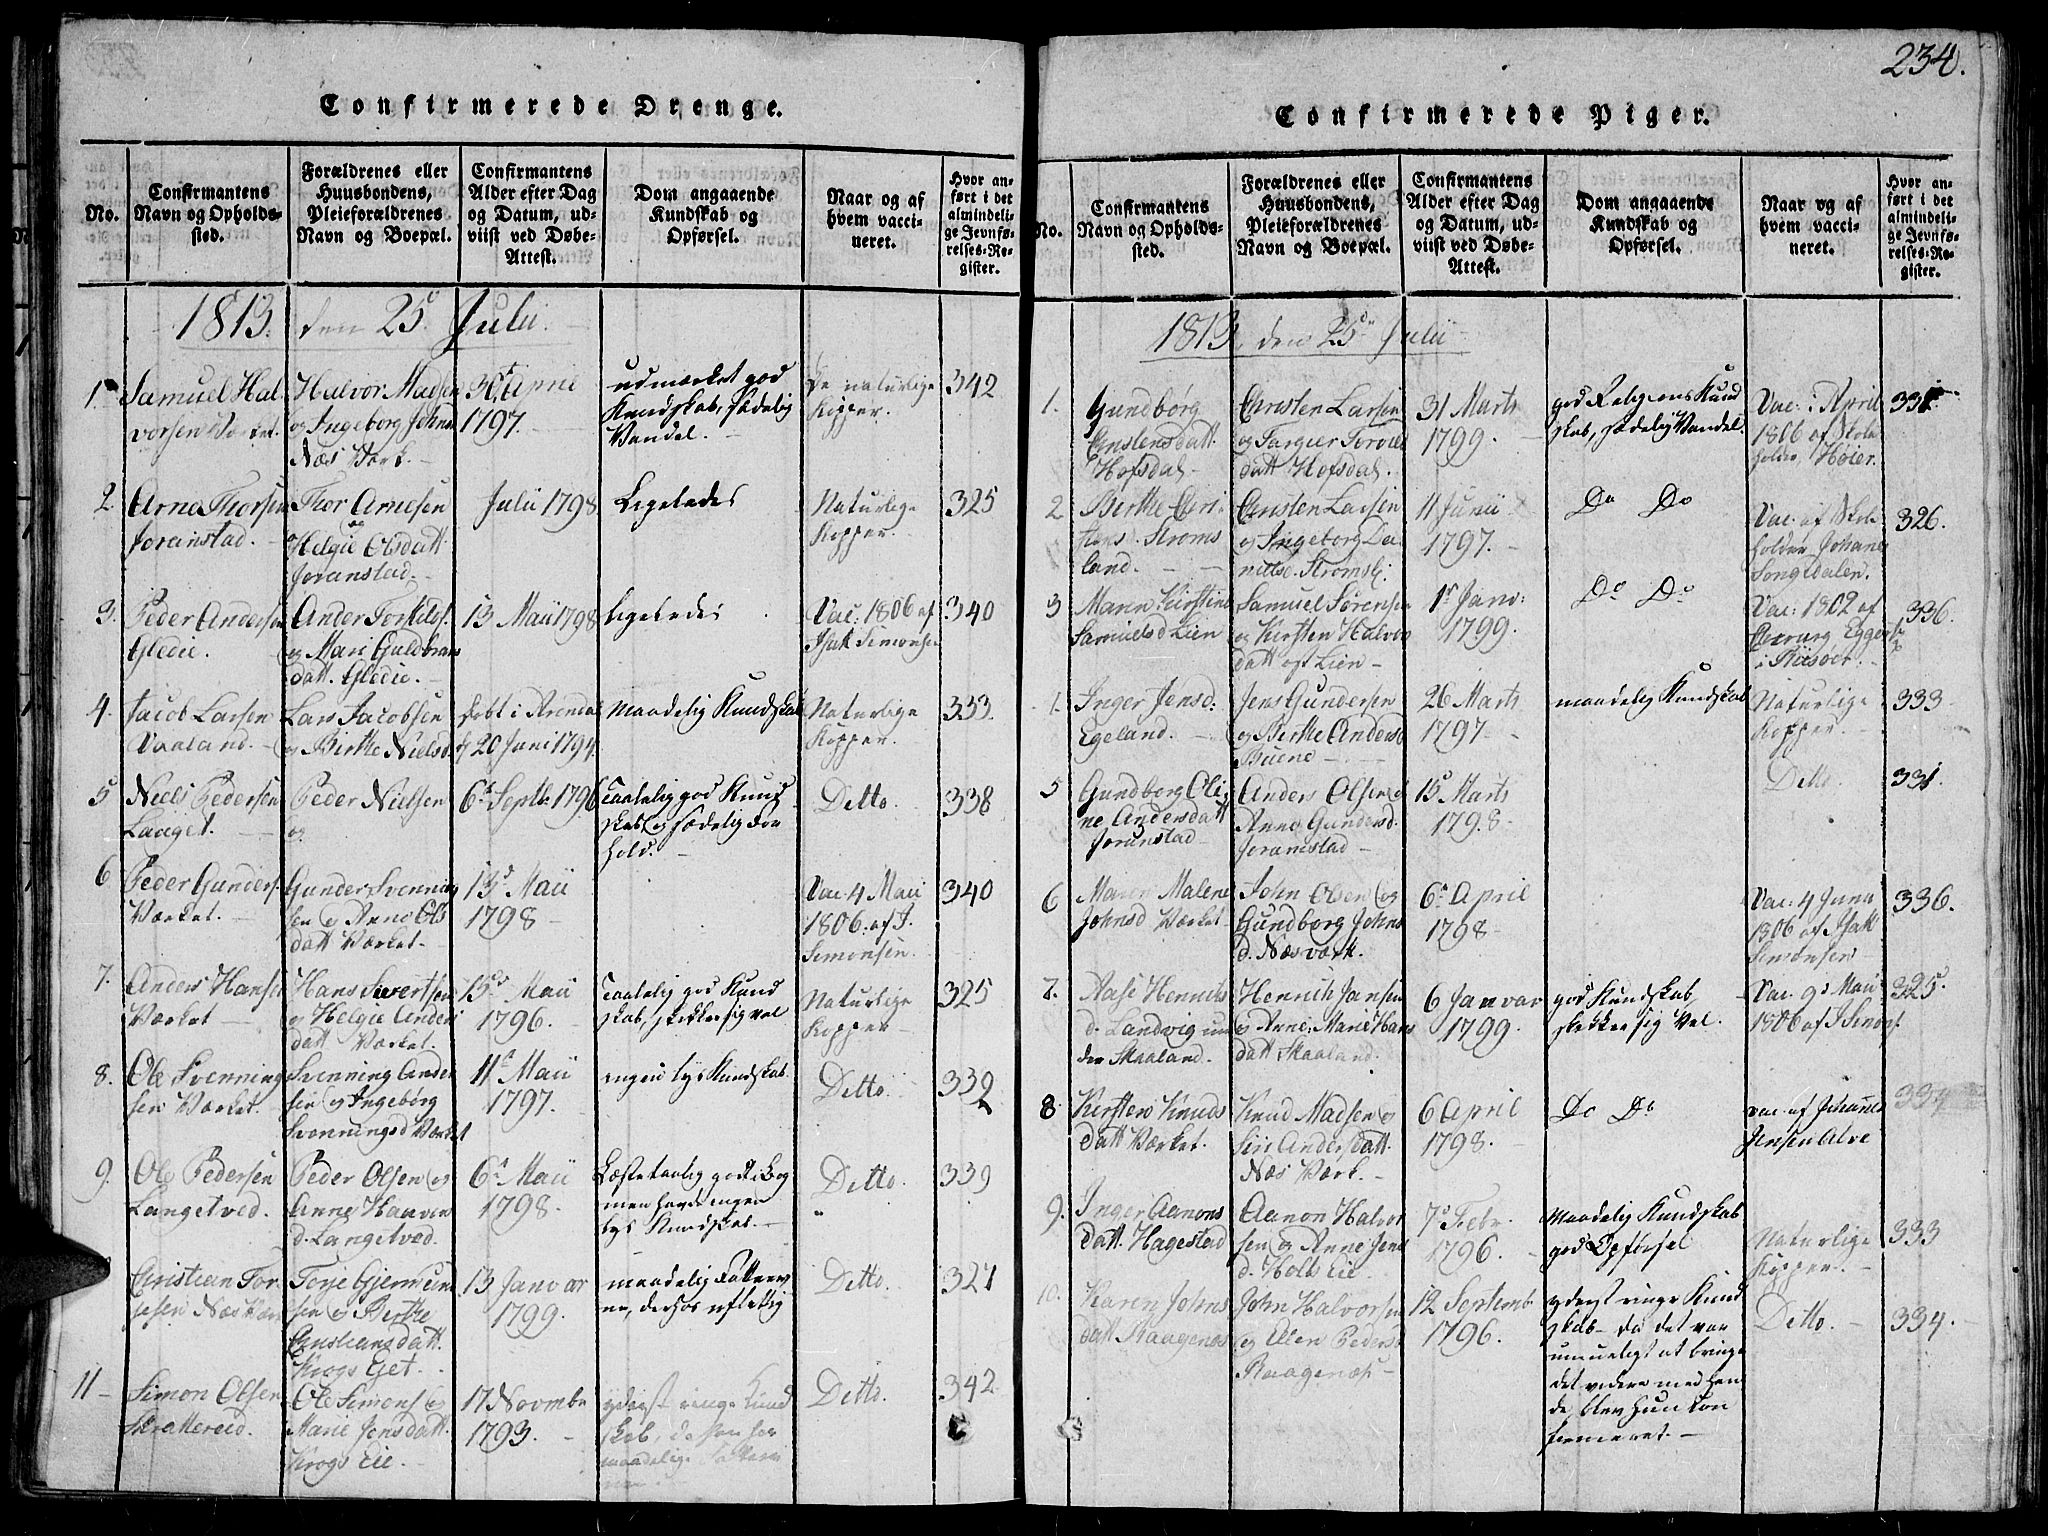 234.
Confirmerede Drenge.
No.
Confirmantens
Navn og Opholds-
sted.
Forældrenes eller
Huusbondens,
Pleieforældrenes
Navn og Boepæl.
Confirmantens
Alder efter Dag
og Datum, ud-
viist ved Døbe-
Attest.
Dom angaaende
Kundskab og
Opførsel.
Naar og af
hvem vacci-
neret.
Hvor an-
ført i det
almindeli-
ge Jevnfø-
relses-Re-
gister.
1813. den 25de Julii.
1.
Samuel Hal
vorsen Værket.
Halvor Madsen
og Ingeborg Johns
Næs Værk.
30t April
1797.
udmærket god
Kundskab, sædelig
Vandel.
De naturlige
Kopper.
342
2.
Arne Thorsen
Joranstad.
Thor Arnesen
og
Helgie Olsdatt
Joranstad.
Julii 1798
Ligeledes
Naturlige
Kopper.
325
3.
Peder Andersen
Gledie.
Ander Torkilds.
og Mari Guldbrans
datt. Gledie.
13 Maii 1798
Ligeledes
Vac. 1806 af
Isak Simonsen
340
4.
Jacob Larsen
Vaaland.
Lars Jacobsen
og Birthe Nielsd
døbt i Arendal
d 20 Juni 1794.
Maadelig Kundskab
Naturlige
Kopper.
333.
5
Niels Pedersen
Langet.
Peder Nielsen
og
6te Septbr 1796
Taalelig god Kund
skab og sædelig For
hold.
Ditto.
338
6
Peder Gunders.
Værket.
Gunder Svenning
sen og Anne Ols
datt Værket.
13de Maii
1798
Vac. 4 Maii
1806. af I.
Simonsen.
340
7.
Anders Hansen
Værket
Hans Sivertsen
og Helgie Anders
datt Værket.
15de Maii
1796.
Taalelig god Kund
skab, skikker sig vel
Naturlige
Kopper
325
8.
Ole Svenning
sen Værket.
Svenning Ander
sen og Ingebørg
Svenningsd Værket
11te Maii
1797.
ingen lys Kundskab
Ditto.
339
9.
Ole Pedersen
Langetved.
Peder Olsen og
Anne Haavors
d. Langetved.
6te Maii
1798.
Læste taalig godt i Bog
men havde ingen
lys Kundskab.
Ditto.
339
Christian Tor
jesen Næs Værk
Torje Gjermun
sen og Birthe
Christiansdatt.
Krogs Eiet.
13 Januar
1799.
maadelig Fatteev
ne, dersos uflittig
Ditto
327
11
Simon Olsen
Skrattereid.
Ole Simons og
Marie Jensdatt.
Krogs Eie.
17 Novembr
1793.
yderst ringe Kund
skab, da han har
maadelige Fatteev
ne
Ditto.
342
Confirmerede Piger.
No.
Confirmantens
Navn og Opholds-
sted.
Forældrenes eller
Huusbondens,
Pleieforældrenes
Navn og Boepæl.
Confirmantens
Alder efter Dag
og Datum, ud-
viist ved Døbe-
Attest.
Dom angaaende
Kundskab og
Opførsel.
Naar og af
hvem vacci-
neret.
Hvor an-
ført i det
almindeli-
ge Jevnfø-
relses-Re-
gister.
1813. den 25de Julii
1.
Gundborg
Christensdatt.
Hofsdal
Christen Larsen
og Targier Torvilds
datt Hofsdal.
31 Marts
1799.
god Religions Kund
skab, sædelig Vandel.
Vac. i April
1806 af Skole
holder Høier.
331
2
Birthe Chri
stens. Stroms
land.
Christen Larsen
og Ingeborg Da
nielsd. Stromsl.
11 Junii
1797.
Do Do
Vac. af Skole
holder Johanes
Songedalen.
326.
3
Maren Kirstine
Samuelsd Lien
Samuel Sørensen
og Kirsten Halvors
datt ost Lien
1st Janv:
1799.
Do Do
Vac: 1802 af
Chirurg Eggers
i Riisøer.
336.
Inger Jensd:
Egeland.
Jens Gundersen
og Birthe Andersd
Buene
26 Marts
1797
maadelig Kundskab
Naturlige
Kopper.
333
5
Gundborg Oli
ne Andersdatt
Joranstad
Anders Olsen og
Anne Gundersd.
Joramstad
15de Marts
1798
Ditto
331.
6
Maren Malene
Johnsd Værket
John Olsen og
Gundborg Johns
d. Næsværk.
6te April
1798
Vac: 4 Junii
1806 af Isak
Simonsen
336.
7.
Aase Henrichs
d. Landvig un
der Skaaland.
Henrich Jansen
og Anne Marie Hans
datt Skaaland.
6 Januar
1799.
god Kundskab,
skikker sig Vel.
Vac. 9de Maii
1806 af I Simons.
325.
8
Kirsten Knuds
datt Værket.
Knud Madsen og
Siri Andersdatt.
Næs Værk.
6 April
1798.
Do Do
vac. af Johannes
Jensen Alve
334
9.
Inger Aanons
datt. Hagestad
Aanon Halvor
sen og Anne Jens
d. Holts Eie.
7de Febr.
1796.
Maadelig Kundskab
god Opførsel
Naturlige
Kopper.
333
10.
Karen Johns
datt Raagenæs
John Halvorsen
og Elen Pedersd
Raagenæs
12 Septemb
1796.
yderst ringe Kund
skab, da det var
umueligt at bringe
det videre med hen
de, blev hun Con
firmeret.
Ditto.
334.